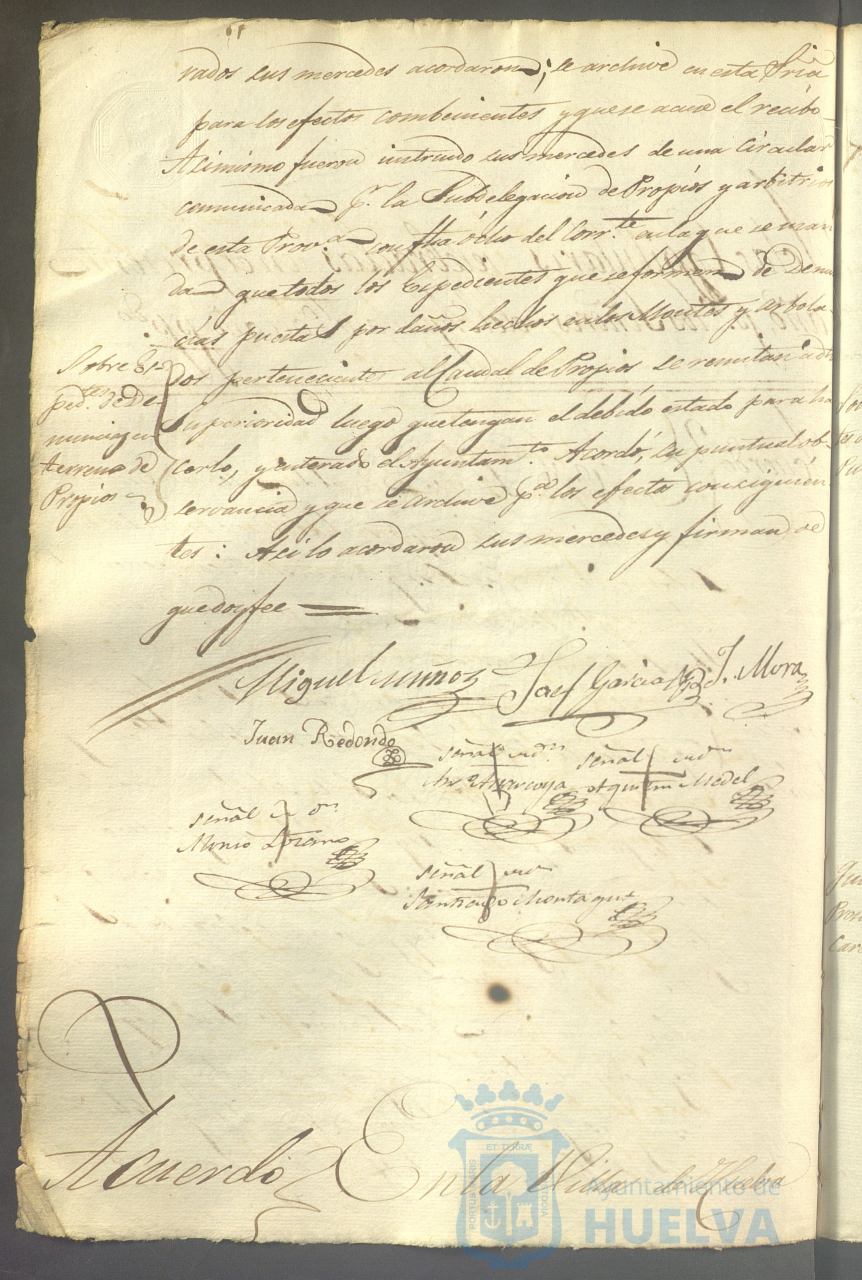 rados sus mercedes acordaron; se archive en esta Sria
para los efectos combenientes y que se acuse el recibo
Asimismo fueron instruido sus mercedes de una Circular
comunicada pr. la Subdelegacion de Propios y arbitrios
de esta Prova con fha ócho del Corrte. en la que se man
da que todos los Expedientes que se formen de Denun
cias puestas por daños hechos en los Montes y arbola
dos perteneciente al Caudal de Propios se remitan a dha
Superioridad luego que tengan el debido estado para ha
cerlo, y enterado el Ayuntamto. Acordó, su puntual ob-
servancia y que se archive pa los efectos consiguien
tes: Asi lo acordaron sus mercedes y firman de
que doy fee
Sobre Ex-
pedtes. de De
nuncias en
terreno de
Propios
Miguel Muñoz
Jasf Garcia
J. Mora
Juan Redondo
señal de
señal de
Agustin Medel
señal de
Lozano
señal de
Santiago
Acuerdo
En la Villa de Huelva
ET TERRÆ
PORTUS MARIS
CUSTODIA
Ayuntamiento de
HUELVA